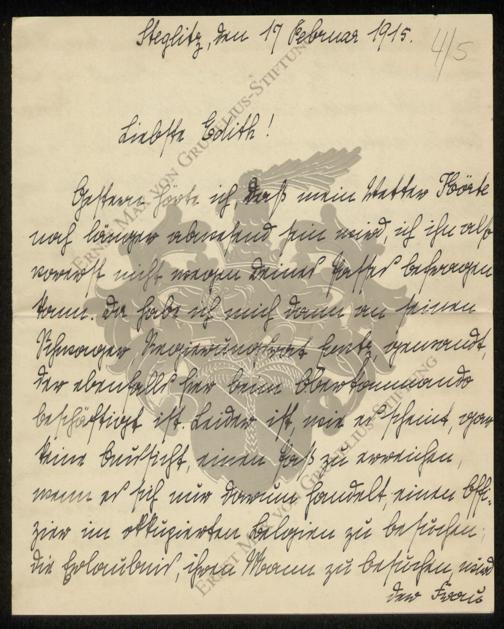 Steglitz, den 17 Februar 1915.
4/5
Liebste Edith!
Gestern hörte ich, daß mein Vetter Körte
noch länger abwesend sein wird, ich ihn also
vorerst nicht wegen Deines Passes befragen
kann. Da habe ich mich dann an seinen
Schwager, Regierungsrat gewandt,
der ebenfalls hier beim Oberkommando
beschäftigt ist. Leider ist, wie es scheint, gar
keine Aussicht, einen Paß zu erreichen,
wenn es sich nur darum handelt, einen Offi-
zier im okkupierten Belgien zu besuchen;
die Erlaubnis, ihren Mann zu besuchen, wird
der Frau
Ernst Max von Grunelius-Stiftung
Ernst Max von Grunelius-Stiftung